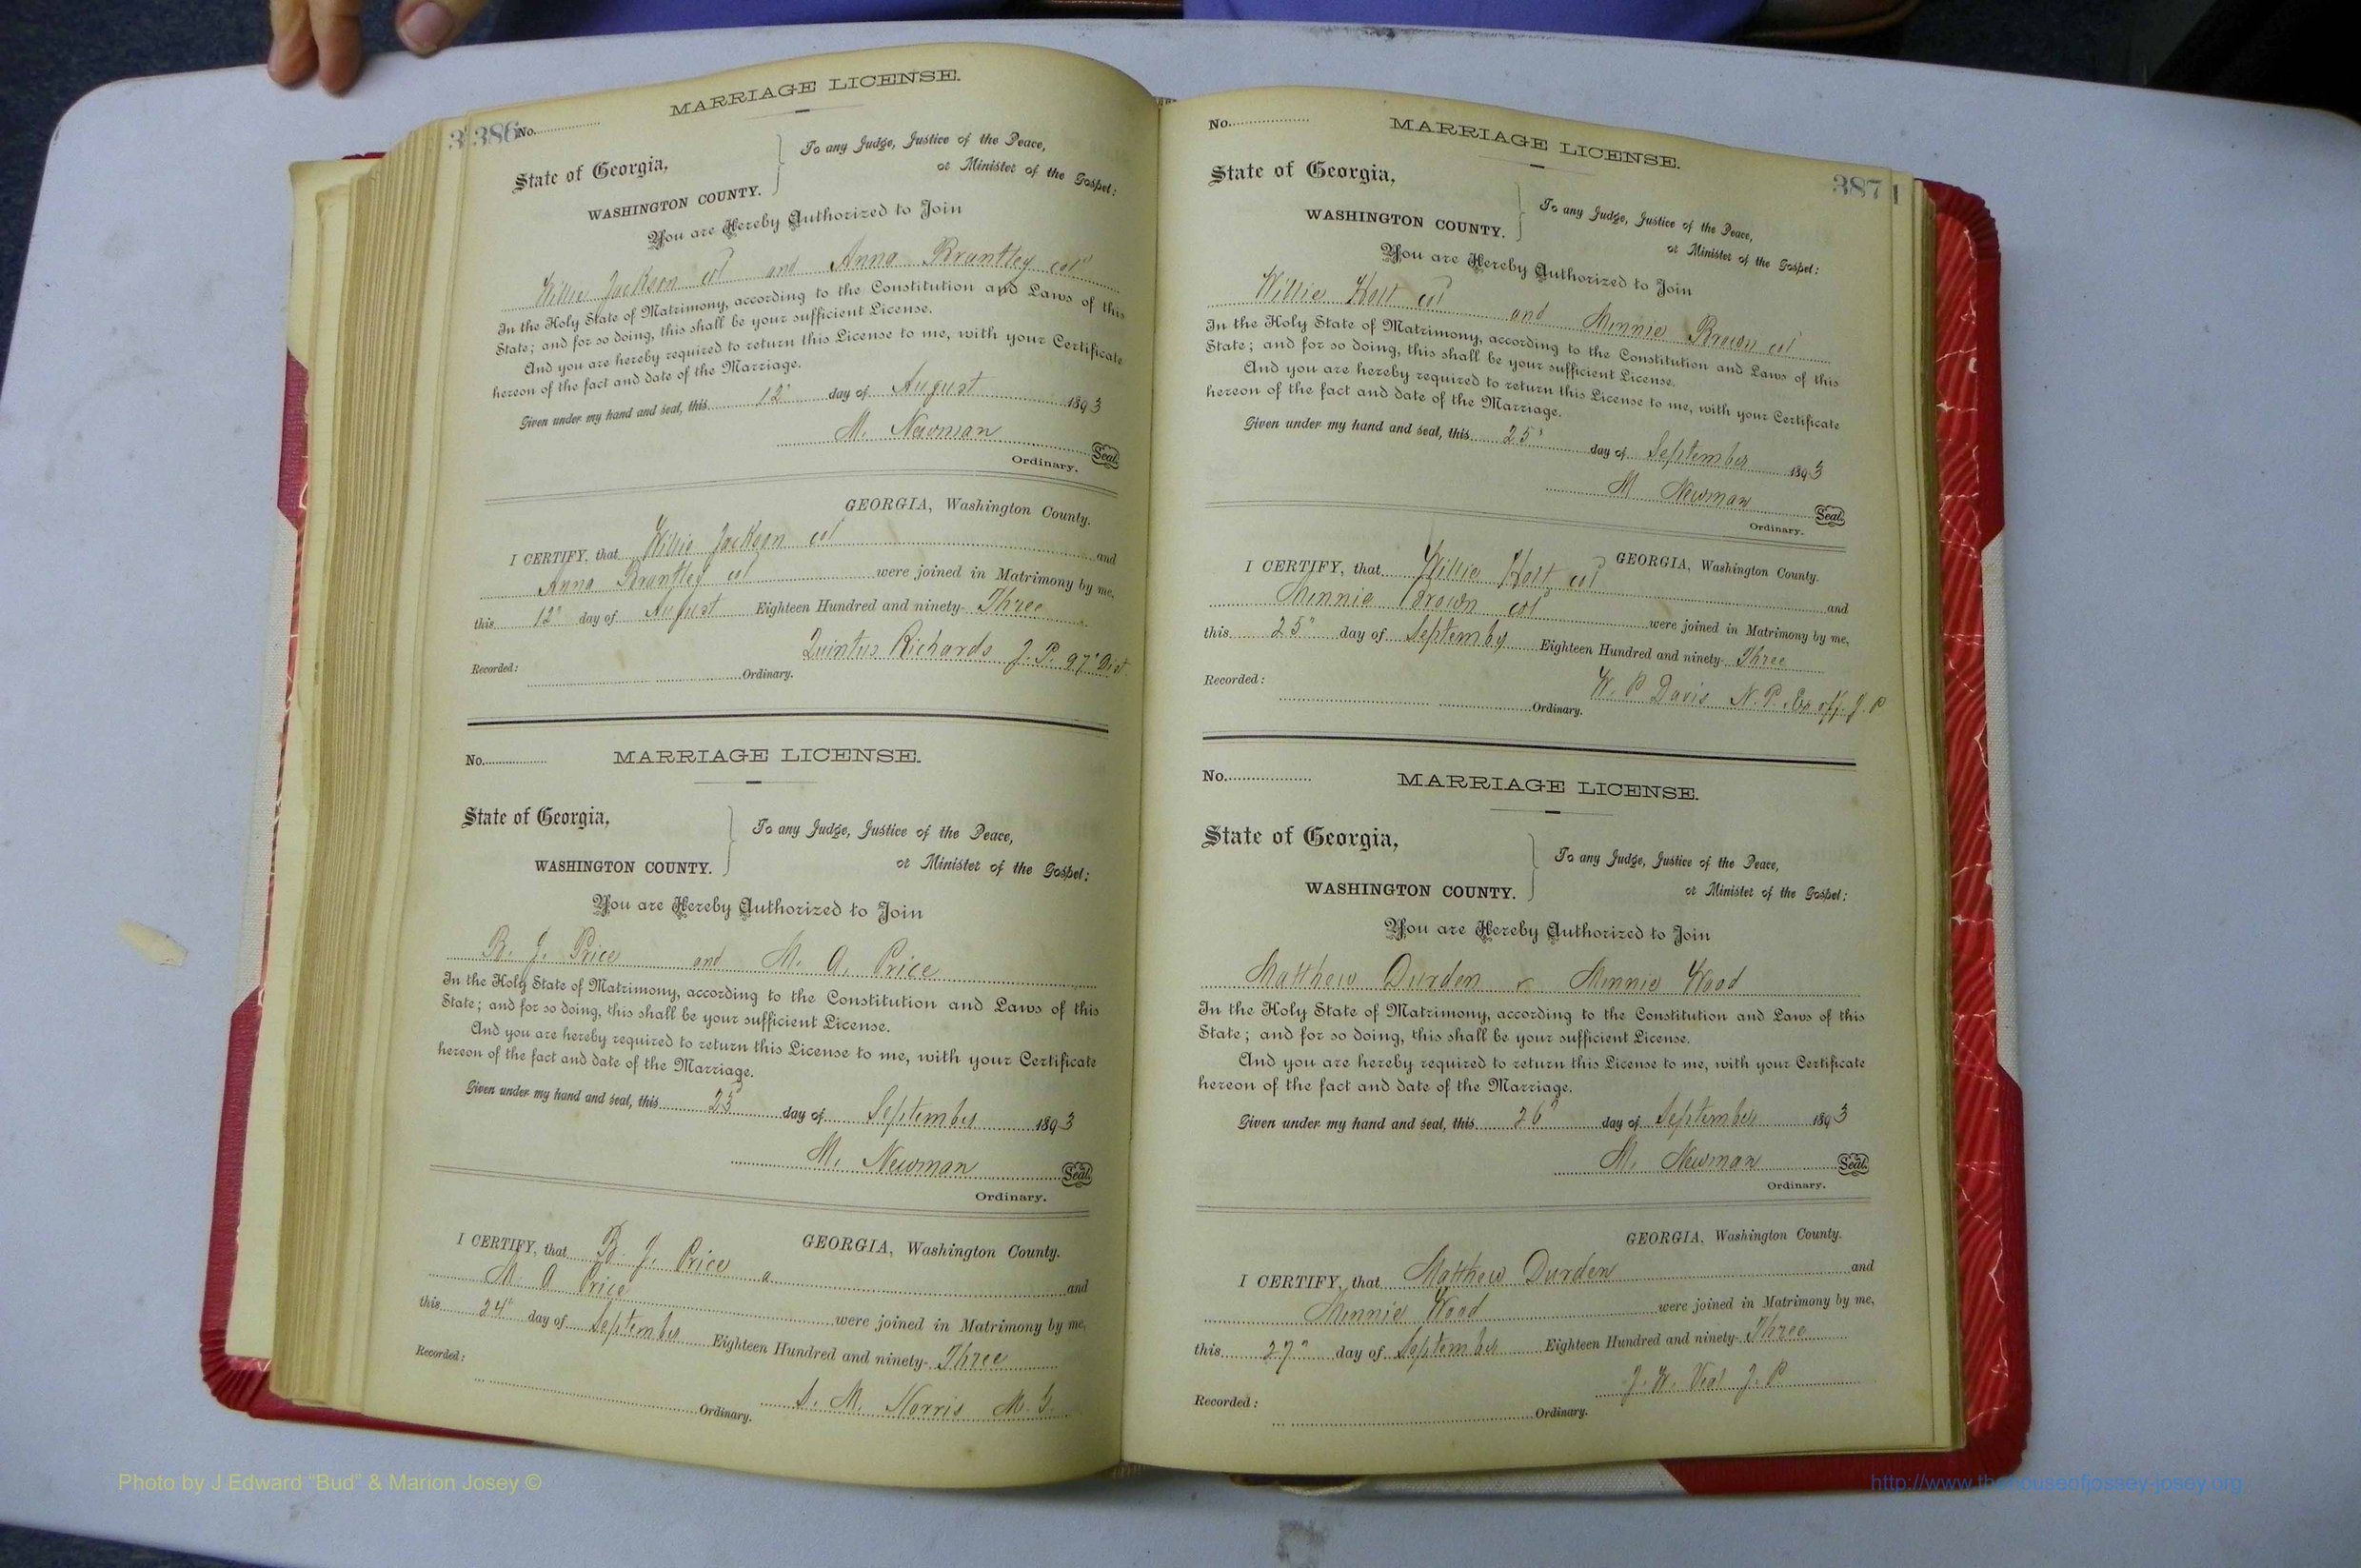 386
No.
MARRIAGE LICENSE.
State of Georgia,
WASHINGTON COUNTY.
To any Judge, Justice of the Peace,
or Minister of the Gospel:
You are Hereby Authorized to Join
Willie Jackson col and Anna Brantley col
In the Holy State of Matrimony, according to the Constitution and Laws of this
State; and for so doing, this shall be your sufficient License.
And you are hereby required to return this License to me, with your Certificate
hereon of the fact and date of the Marriage.
Given under my hand and seal, this 12" day of August 1893
M. Newman
Seal.
Ordinary.
GEORGIA, Washington County.
I CERTIFY, that Willie Jackson col and
Anna Brantley col were joined in Matrimony by me,
this 12" day of August Eighteen Hundred and ninety-Three
Quintus Richards J. P. 97" Dist
Recorded:
Ordinary.
No.
MARRIAGE LICENSE.
State of Georgia,
WASHINGTON COUNTY.
To any Judge, Justice of the Peace,
or Minister of the Gospel:
You are Hereby Authorized to Join
B. J. Price and M. A. Price
In the Holy State of Matrimony, according to the Constitution and Laws of this
State; and for so doing, this shall be your sufficient License.
And you are hereby required to return this License to me, with your Certificate
hereon of the fact and date of the Marriage.
Given under my hand and seal, this day of September 1893
M. Newman
Seal.
Ordinary.
GEORGIA, Washington County.
I CERTIFY, that B. J. Price and
M. A Price were joined in Matrimony by me,
this 24" day of September Eighteen Hundred and ninety-Three
S. M. Norris M. G.
Recorded:
Ordinary.
No.
MARRIAGE LICENSE.
387
State of Georgia,
WASHINGTON COUNTY.
To any Judge, Justice of the Peace,
or Minister of the Gospel:
You are Hereby Authorized to Join
Willie Holt col and Minnie Brown col
In the Holy State of Matrimony, according to the Constitution and Laws of this
State; and for so doing, this shall be your sufficient License.
And you are hereby required to return this License to me, with your Certificate
hereon of the fact and date of the Marriage.
Given under my hand and seal, this 25" day of September 1893
M Newman
Seal.
Ordinary.
GEORGIA, Washington County.
I CERTIFY, that Willie Holt col and
Minnie Brown col were joined in Matrimony by me,
this 25" day of September Eighteen Hundred and ninety-Three
W. P Davis N. P. Ex off. J. P
Recorded:
Ordinary.
No.
MARRIAGE LICENSE.
State of Georgia,
WASHINGTON COUNTY.
To any Judge, Justice of the Peace,
or Minister of the Gospel:
You are Hereby Authorized to Join
Matthew Durden & Minnie Wood
In the Holy State of Matrimony, according to the Constitution and Laws of this
State; and for so doing, this shall be your sufficient License.
And you are hereby required to return this License to me, with your Certificate
hereon of the fact and date of the Marriage.
Given under my hand and seal, this 26" day of September 1893
M. Newman
Seal.
Ordinary.
GEORGIA, Washington County.
I CERTIFY, that Matthew Durden and
Minnie Wood were joined in Matrimony by me,
this 27" day of September Eighteen Hundred and ninety-Three
J. W. Veal J. P.
Recorded:
Ordinary.
Photo by J Edward “Bud” & Marion Josey ©
http://www.thehouseofjossey-josey.org